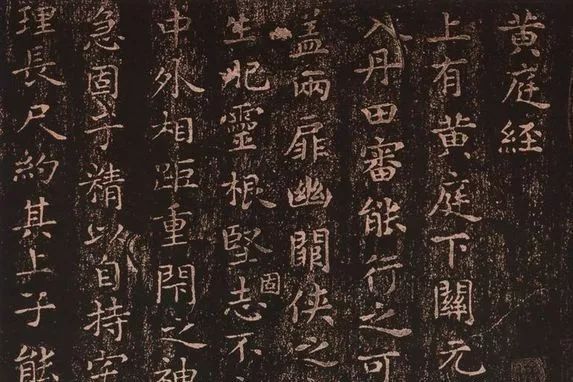 黄庭経
上有黄庭下關元
入丹田審能行之可
盖兩扉幽闕俠之
生肥靈根堅固志不
中外相距重閇之神
急固子精以自持宅
理長尺約其上子能